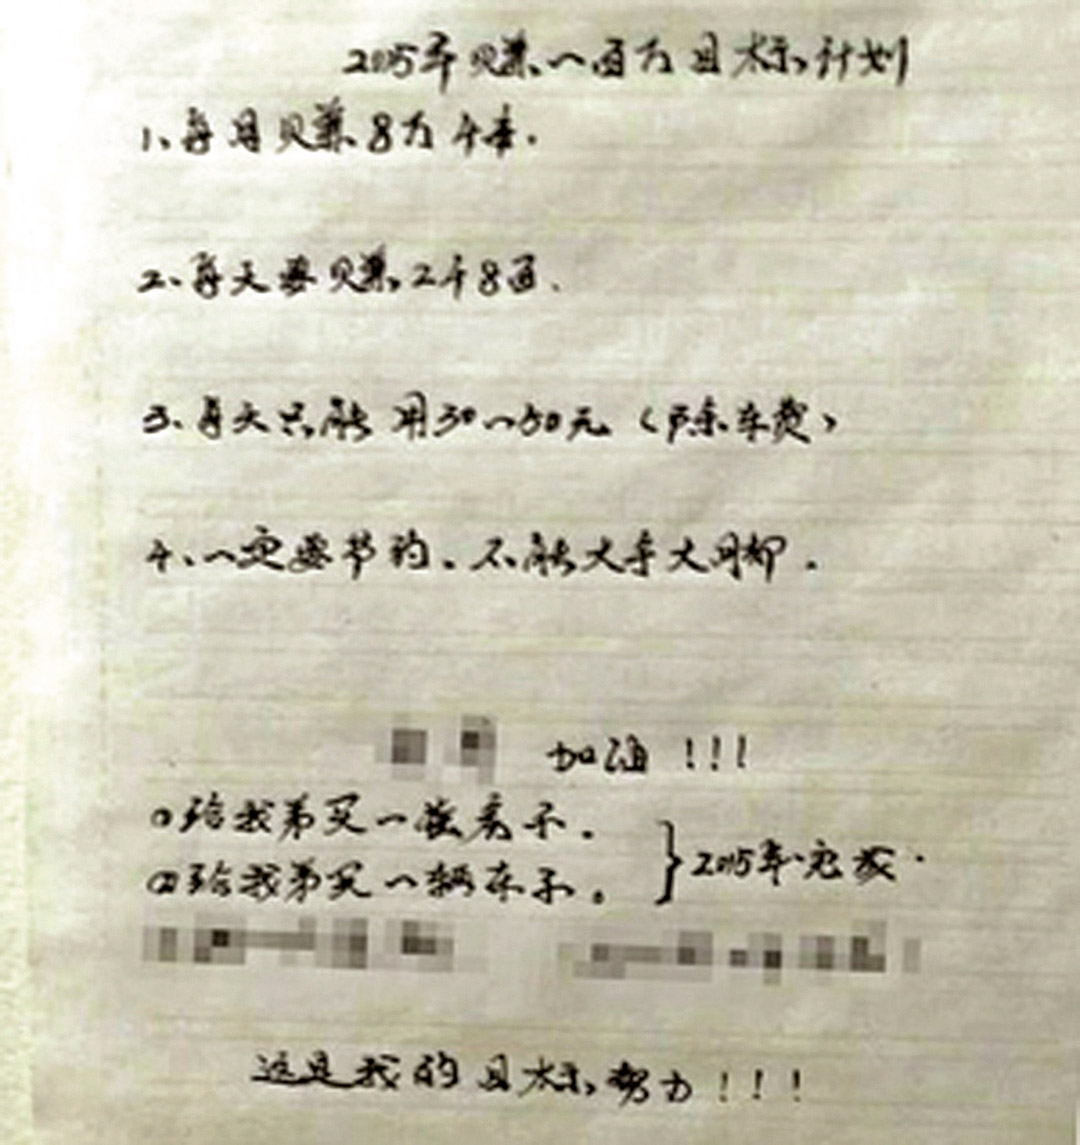 2015年赚一百万目标计划
1、每月赚8万千.
2、每天要赚2千8百.
3、每天只能用30~50元（除车费）
4、一定要节约、不能大手大脚.
加油!!!
①给我弟买一套房子.
②给我弟买一辆车子。
2015年完成.
这是我的目标,努力!!!